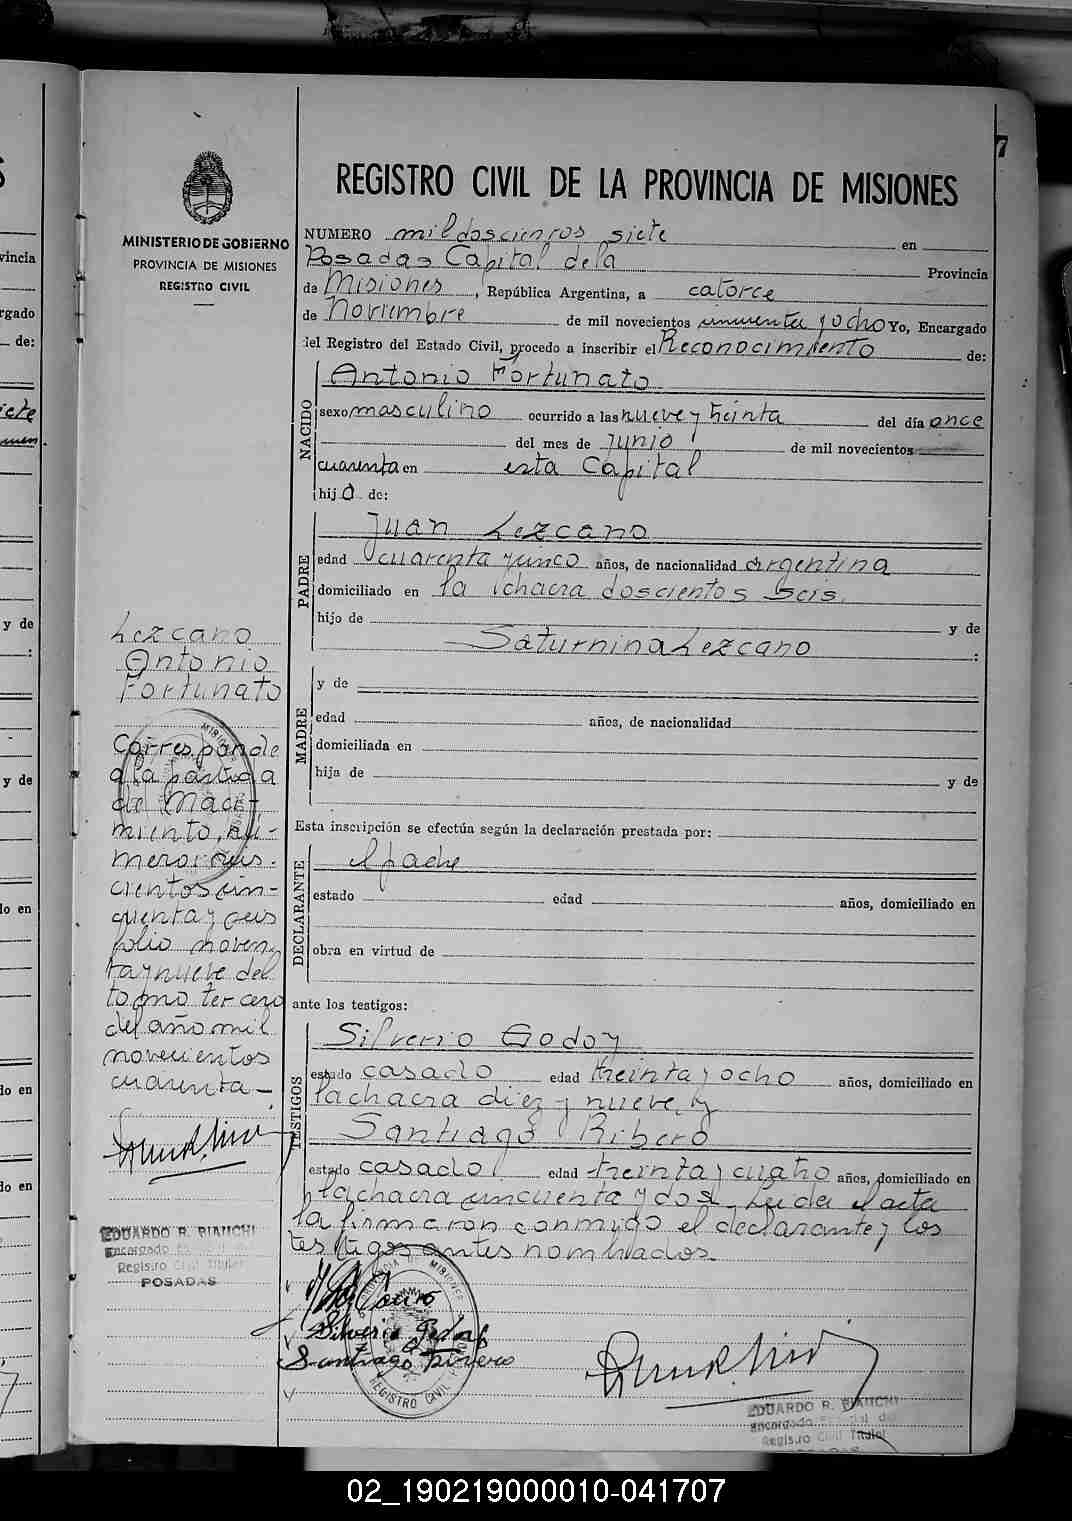 7
REGISTRO CIVIL DE LA PROVINCIA DE MISIONES
MINISTERIO DE GOBIERNO
PROVINCIA DE MISIONES
REGISTRO CIVIL
NUMERO mil doscientos siete en
Posadas Capital de la Provincia
de Misiones, República Argentina, a catorce
de Noviembre de mil novecientos cincuenta y ocho Yo, Encargado
del Registro del Estado Civil, procedo a inscribir el Reconocimiento de:
NACIDO
Antonio Fortunato
sexo masculino ocurrido a las nueve y treinta del día once
del mes de Junio de mil novecientos
cuarenta en esta Capital
hijo de:
PADRE
Juan Lezcano
edad cuarenta y cinco años, de nacionalidad Argentina
domiciliado en la chacra doscientos seis.
hijo de y de
Saturnina Lezcano :
MADRE
y de
edad años, de nacionalidad
domiciliada en
hija de y de
Esta inscripción se efectúa según la declaración prestada por:
DECLARANTE
el padre
estado edad años, domiciliado en
obra en virtud de
ante los testigos:
TESTIGOS
Silverio Godoy
estado casado edad treinta y ocho años, domiciliado en
la chacra diez y nueve y
Santiago Ribero
estado casado edad treinta y cuatro años, domiciliado en
la chacra cincuenta y dos. Leida el acta
la firmaron conmigo el declarante y los
testigos antes nombrados.
Silverio Godoy
Santiago Rivero
PROVINCIA DE MISIONES
REGISTRO CIVIL
EDUARDO R. BIANCHI
Encargado
Registro Civil Titular
POSADAS
Lezcano
Antonio
Fortunato
Corresponde
a la partida
de Naci-
miento, nu-
mero seis-
cientos cin-
cuenta y seis
folio noven
ta y nueve del
tomo tercero
del año mil
novecientos
cuarenta-
EDUARDO R. BIANCHI
Encargado
Registro Civil Titular
POSADAS
vincia
rgado
de:
iete
y de
:
y de
do en
do en
do en
02_190219000010-041707